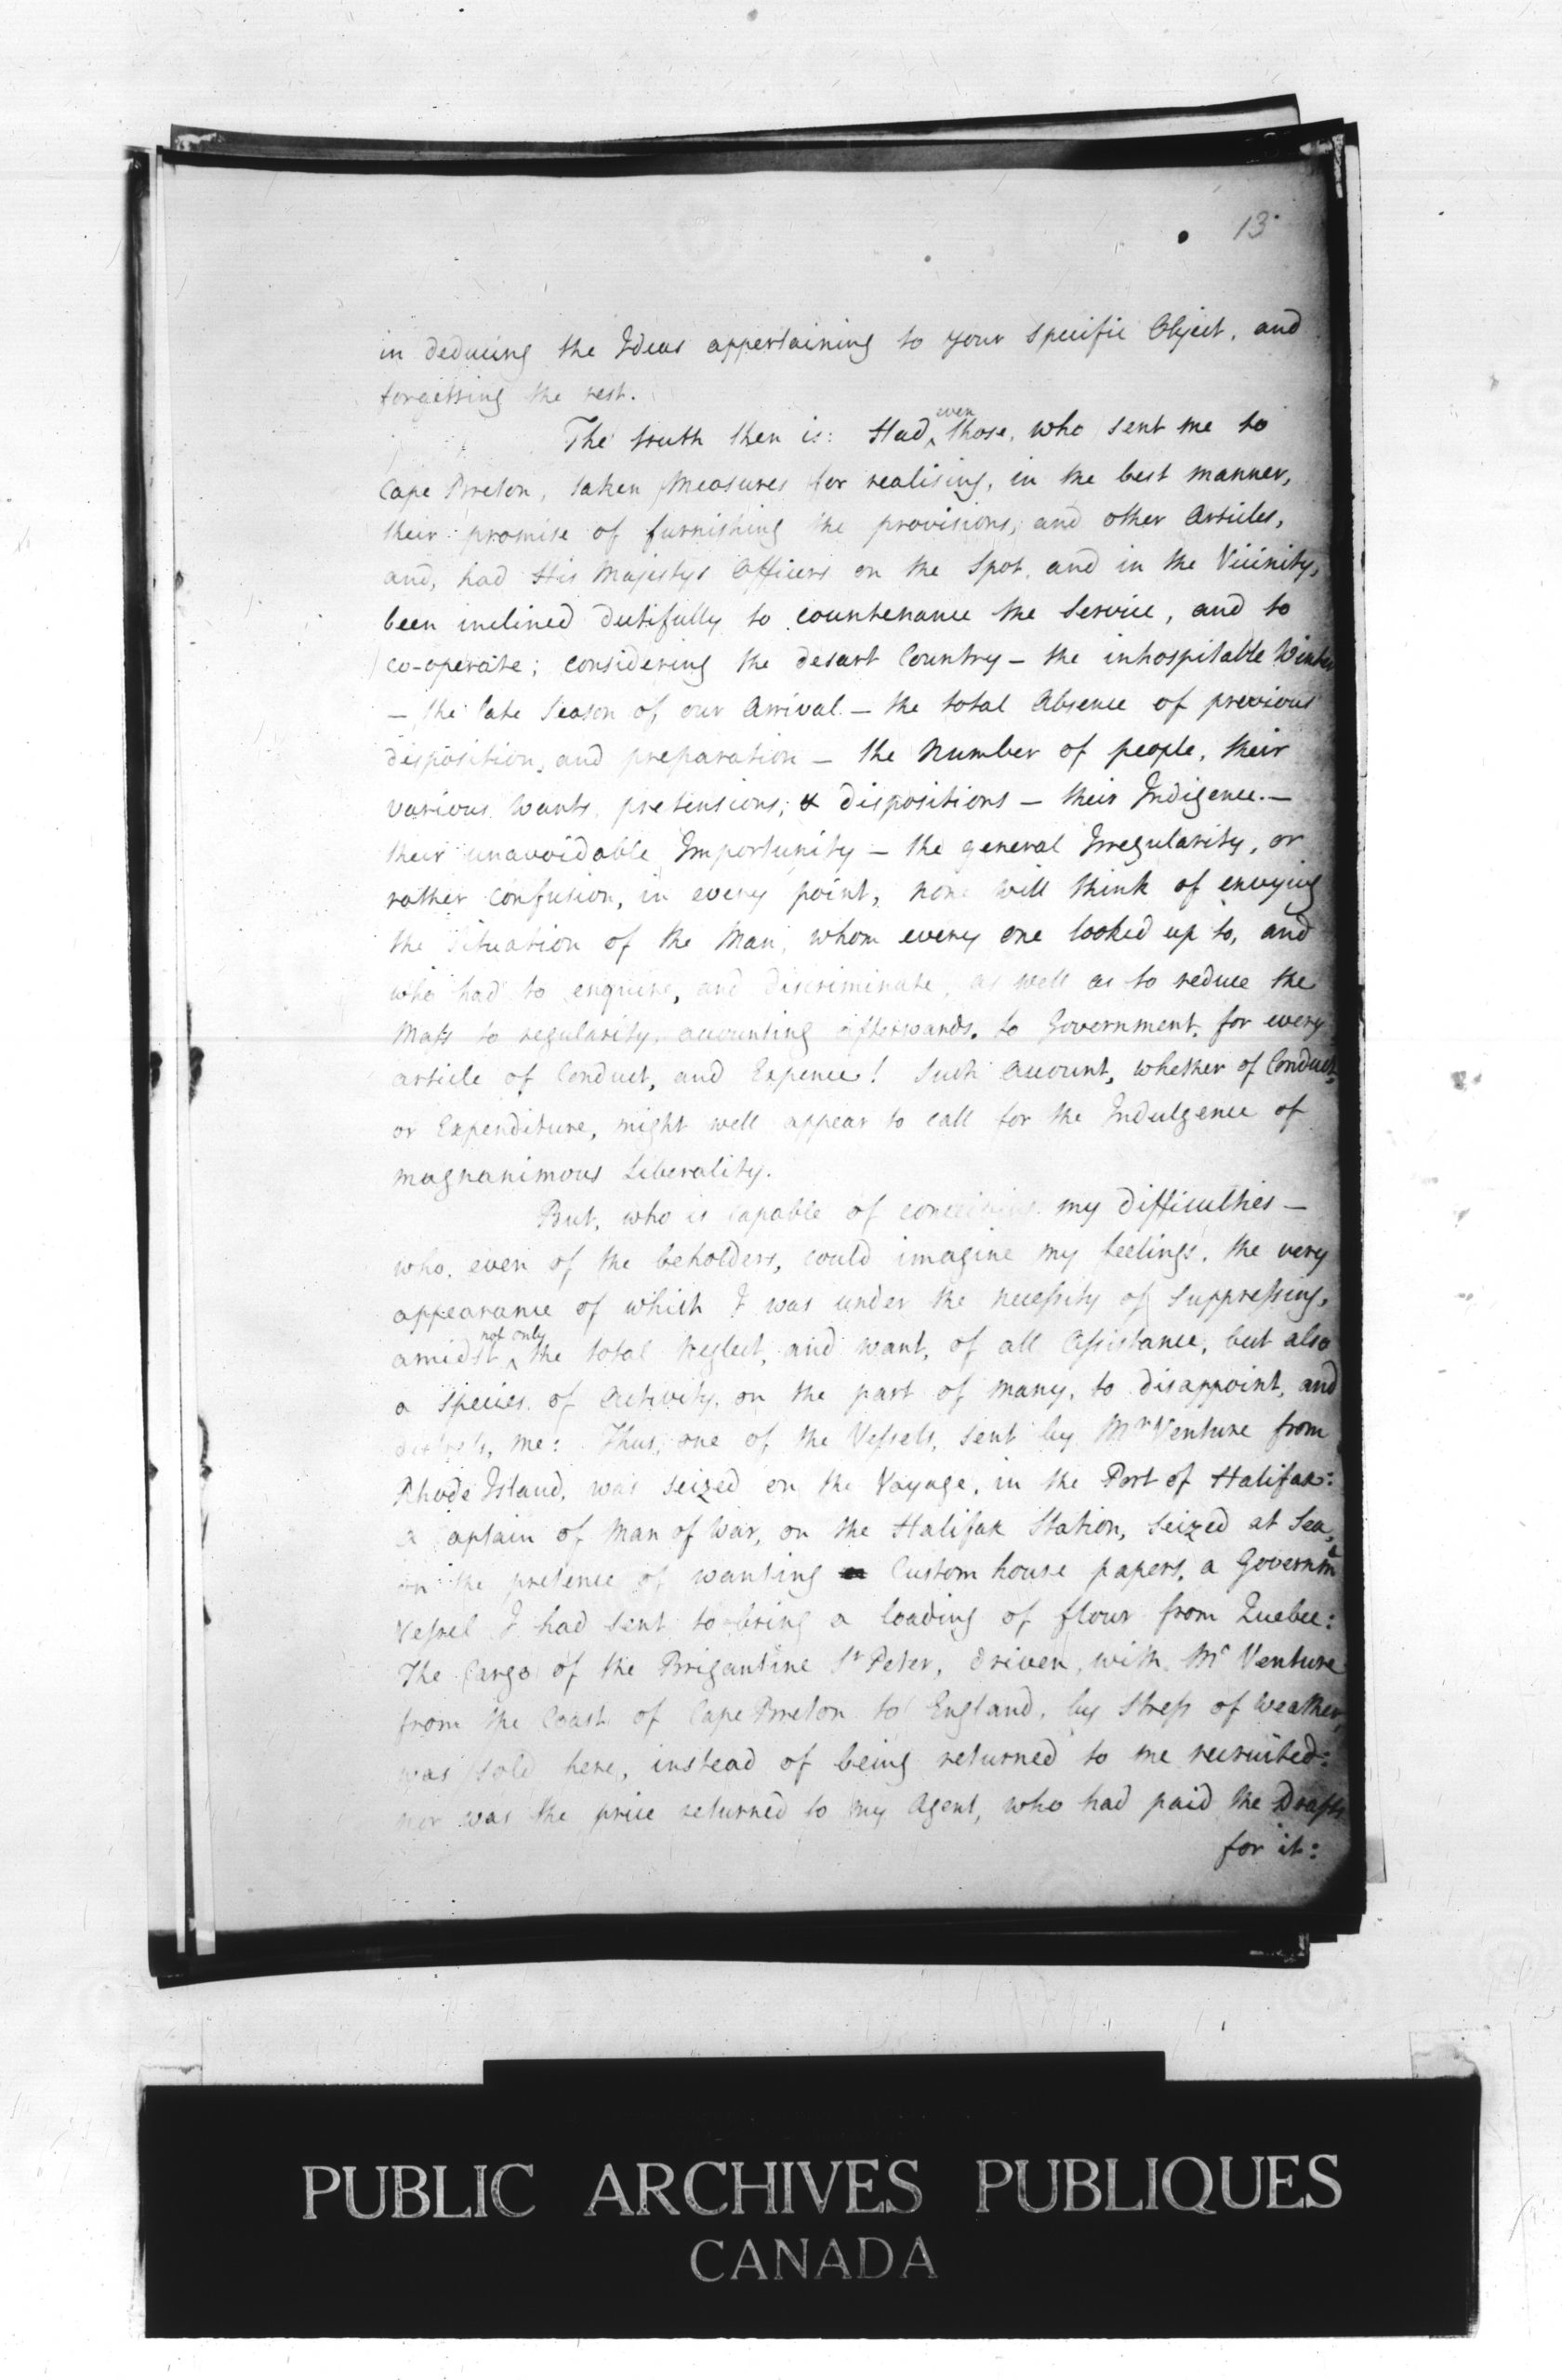 13
in deducing the Ideas appertaining to your specific Object, and
forgetting the rest.
even
The truth then is: Had ‸ those, who sent me to
Cape Breton, taken Measures for realising, in the best manner,
their promise of furnishing the provisions, and other Articles,
and, had His Majestys Officers on the Spot, and in the Vicinity,
been inclined dutifully to countenance the Service, and to
co-operate; considering the desart Country – the inhospitable Winter
– the late Season of our Arrival – the total Absence of previous
disposition, and preparation – the Number of people, their
various Wants, pretensions, & dispositions – their Indigence. –
their unavoidable Importunity – the general Irregularity, or
rather Confusion, in every point, none will think of envying
the Situation of the Man, whom every one looked up to, and
who had to enquire, and discriminate, as well as to reduce the
Mass to regularity, accounting afterwards, to Government, for every
article of Conduct, and Expence! Such Account, whether of Conduct,
or Expenditure, might well appear to call for the Indulgence of
magnanimous Liberality.
But, who is capable of conceiving my difficulties –
who, even of the beholders, could imagine my feelings, the very
appearance of which I was under the necessity of suppressing,
not only
amidst ‸ the total Neglect, and want, of all Assistance, but also
a species of Activity, on the part of many, to disappoint, and
distress, me: Thus, one of the Vessels, sent by Mr Venture from
Rhode Island, was seized on the Voyage, in the Port of Halifax:
a Captain of Man of War, on the Halifax Station, seized at Sea,
on the pretence of wanting Custom house papers, a Governmt
Vessel I had sent to bring a loading of flour from Quebec:
The Cargo of the Brigantine St Peter, driven, with Mr Venture
from the Coast of Cape Breton to England, by Stress of Weather,
was sold here, instead of being returned to me recruited:
nor was the price returned to my Agent, who had paid the Drafts
for it:
PUBLIC ARCHIVES PUBLIQUES
CANADA